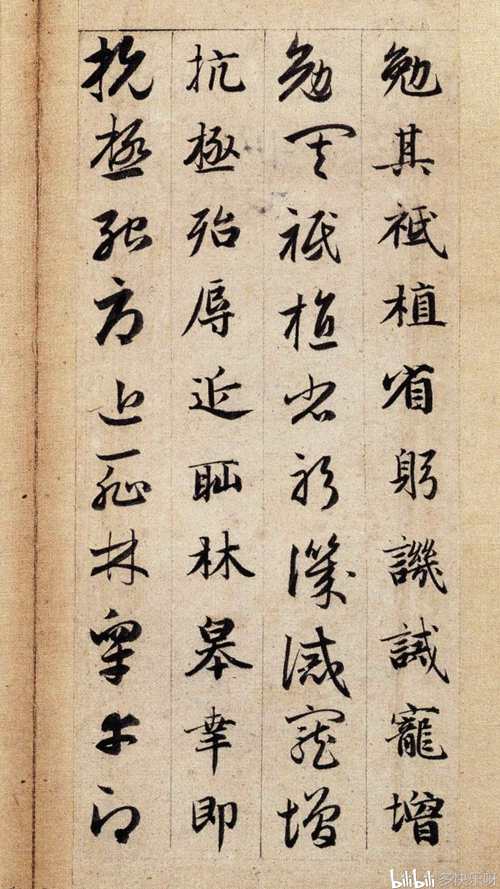 勉其祗植省躬譏誡寵增
勉其祗植省躬譏誡寵增
抗極殆辱近恥林皋幸即
抗極殆辱近恥林皋幸即
bilibili 多快乐呀